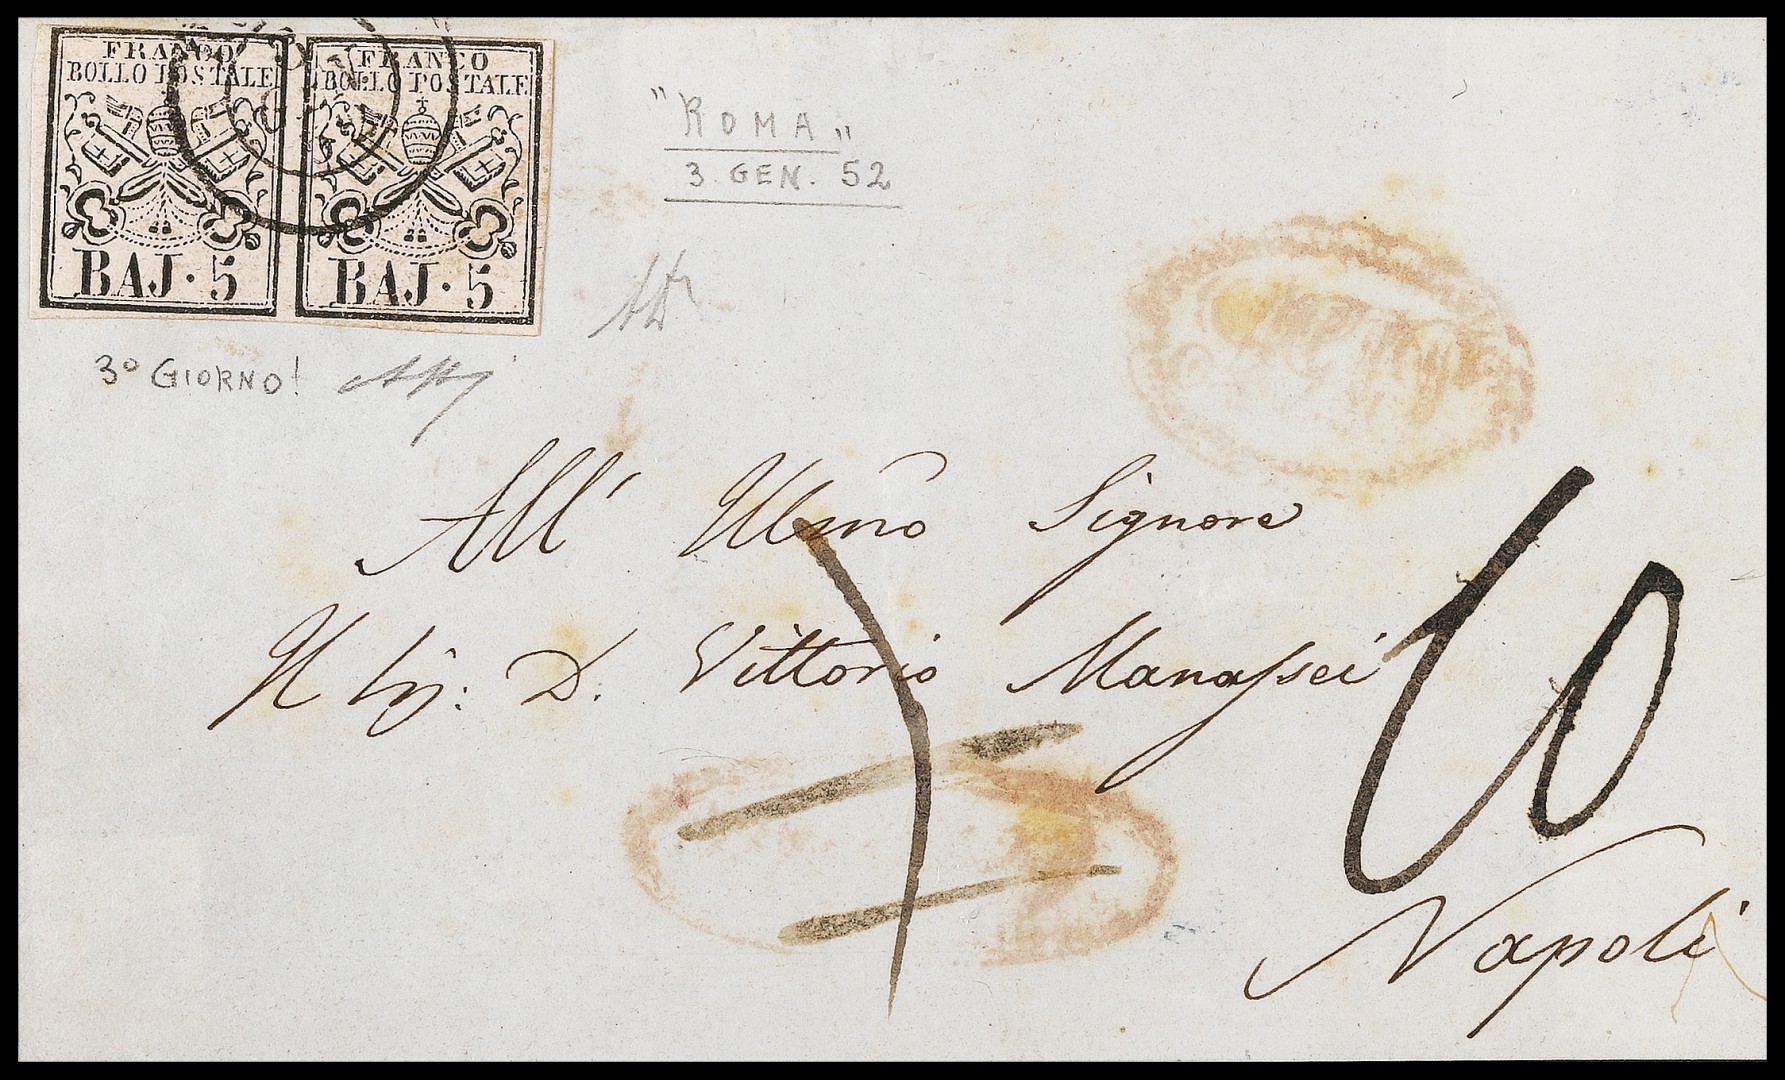 FRANCO
BOLLO POSTALE
BAJ · 5
FRANCO
BOLLO POSTALE
BAJ · 5
"ROMA"
3. GEN. 52
3º GIORNO!
All' Illmo Signore
D. Vittorio Manaſsei
10
Napoli